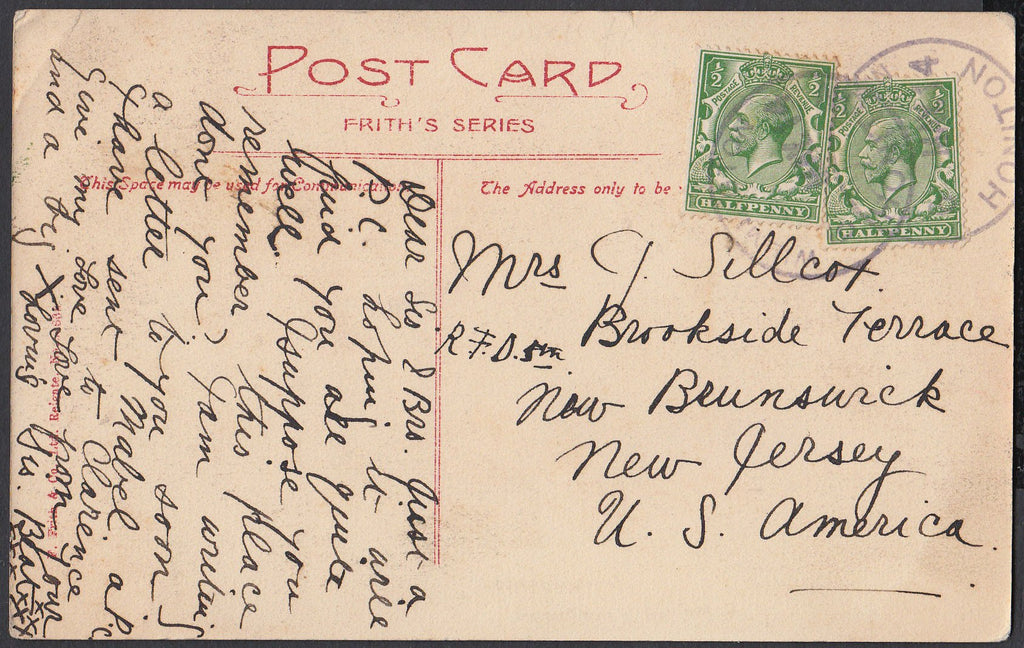 POST CARD
FRITH'S SERIES
This Space may be used for Communication
The Address only to be
½ ½
POSTAGE REVENUE
HALFPENNY
½ ½
POSTAGE REVENUE
HALFPENNY
HONITON
4
Mrs J. Sillcox
Brookside Terrace
R.F.D. 5m
New Brunswick
New Jersey
U. S. America.
Dear Sis & Bro. Just a
P.C. hoping it will
find you all quite
well. I suppose you
remember this place
done you? I am writing
a letter to you soon
I have sent Mabel a P.C
Give my love to Clarence
and a big X Love from your
Loving Sis.
F. Frith & Co. Ltd. Reigate